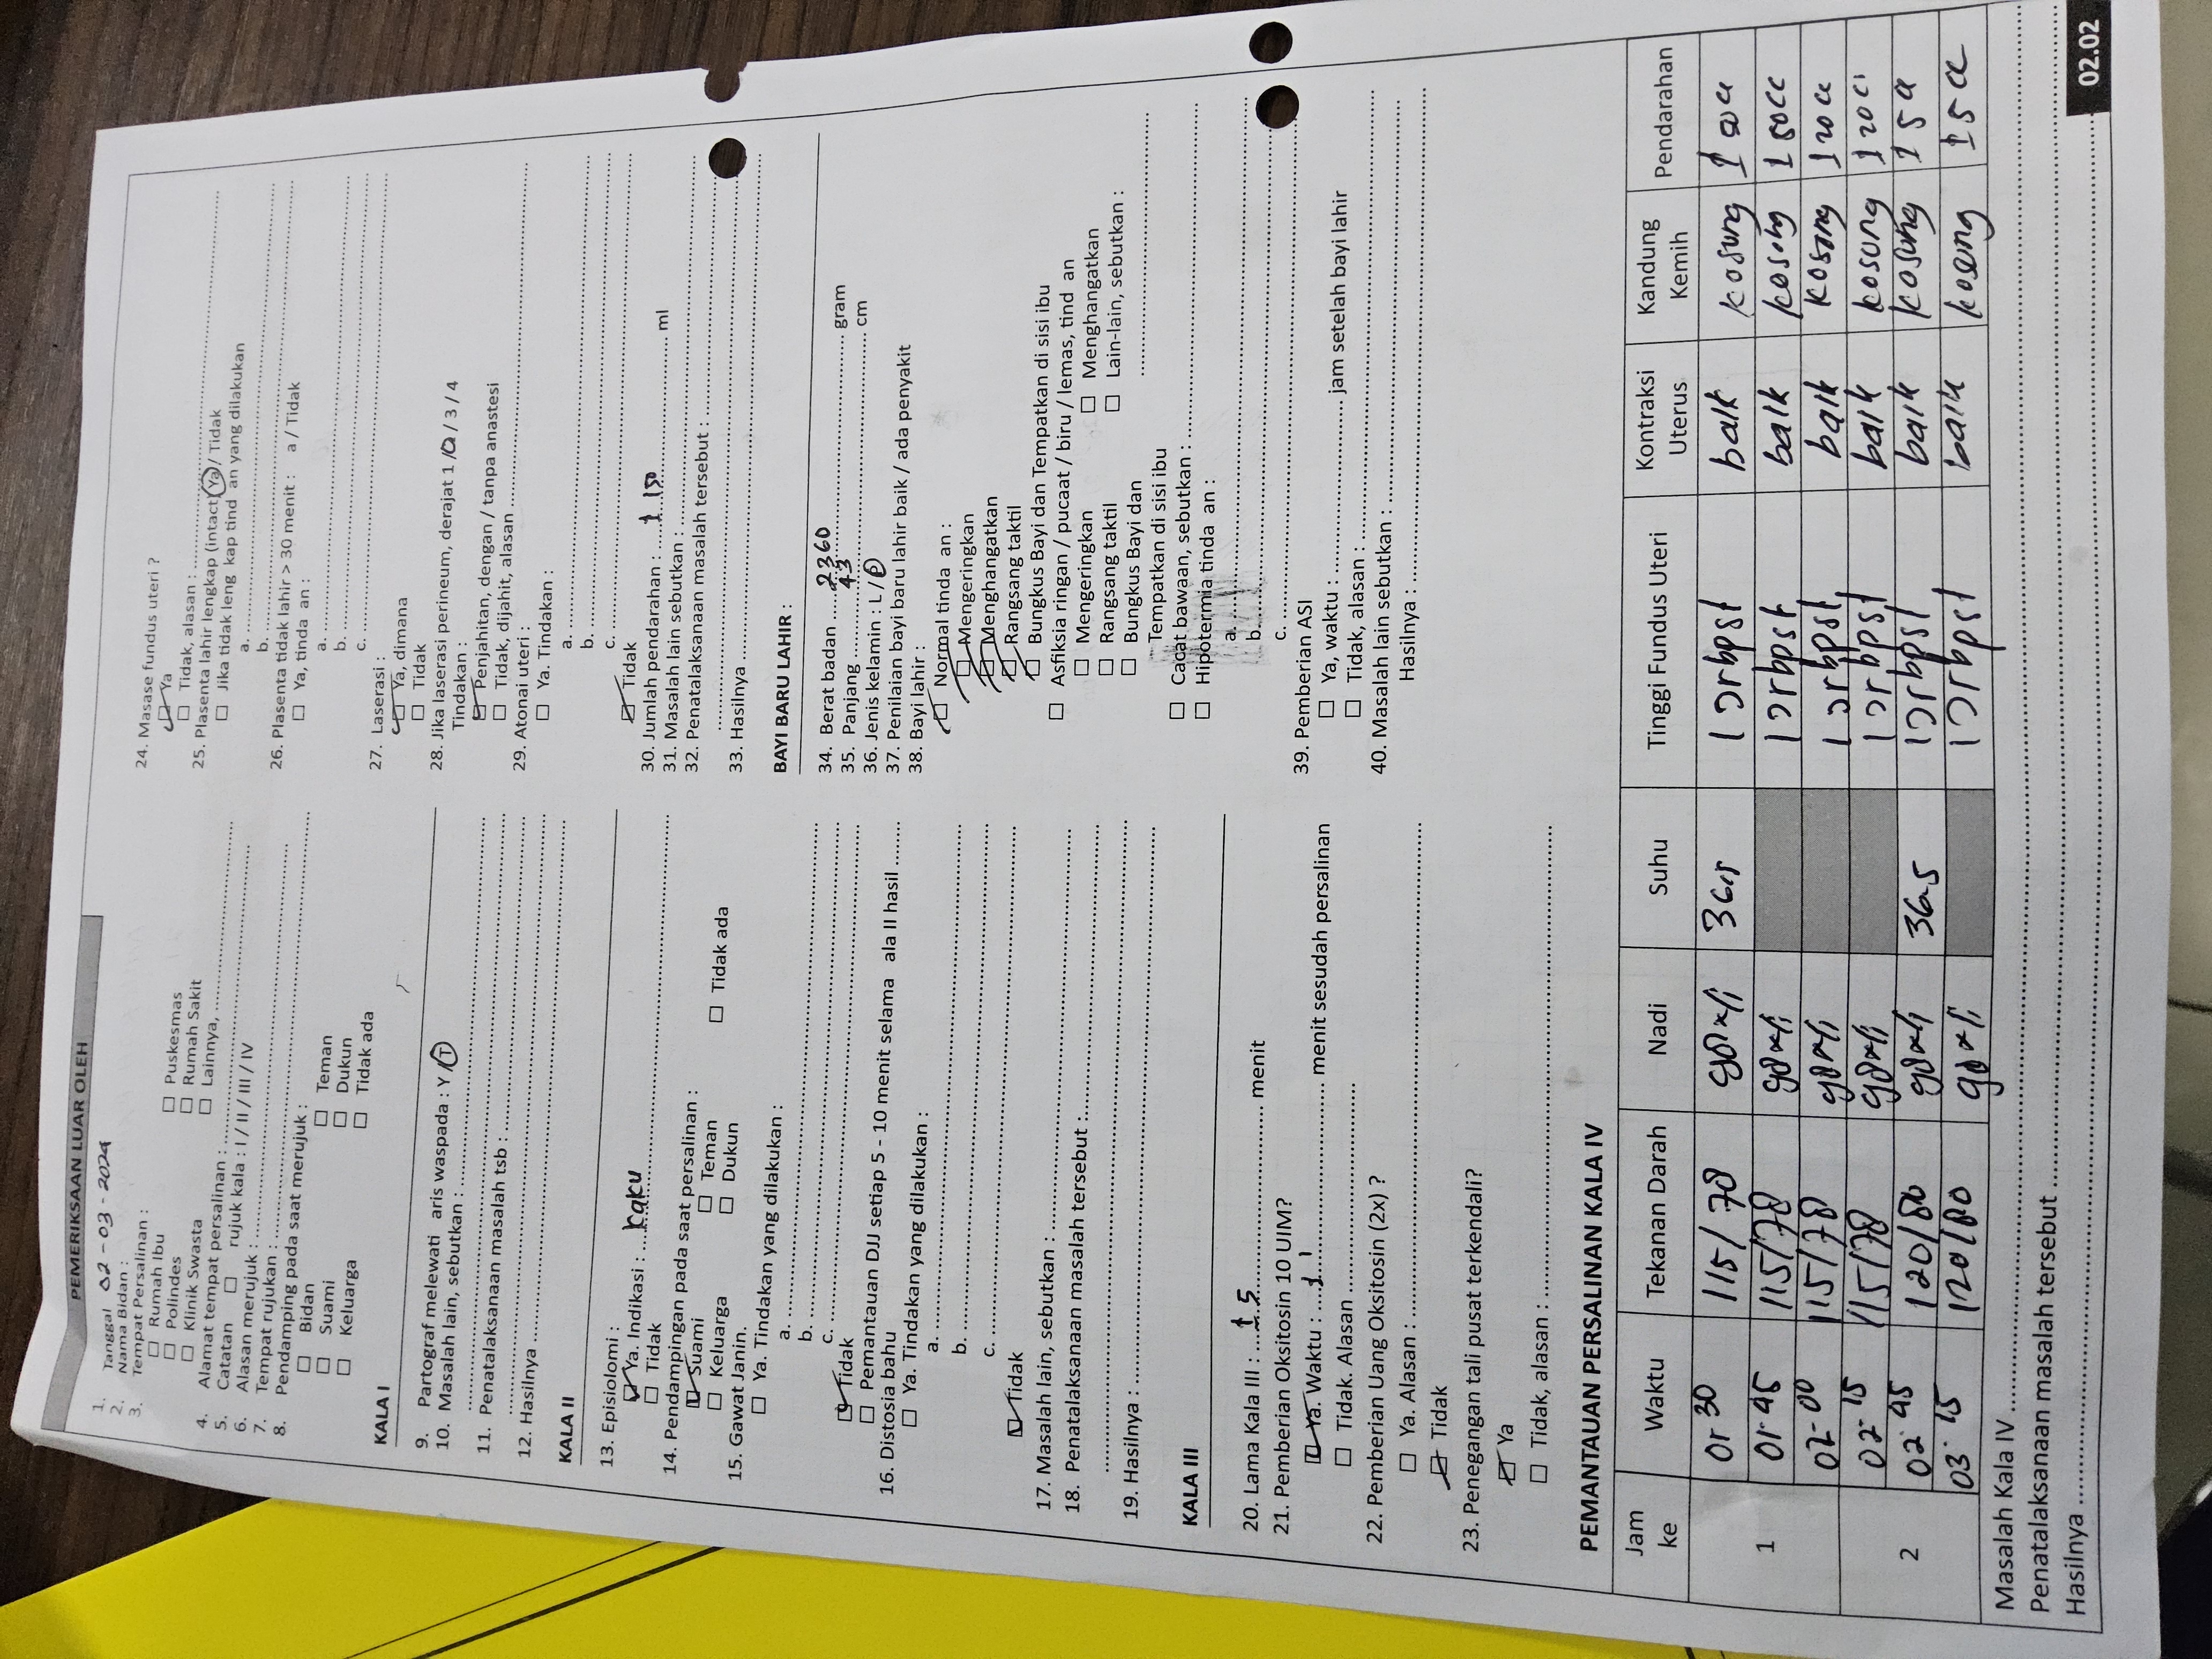 PEMERIKSAAN LUAR OLEH
1. Tanggal 02 - 03 - 2024
2. Nama Bidan :
3. Tempat Persalinan :
☐ Rumah Ibu ☐ Puskesmas
☐ Polindes ☐ Rumah Sakit
☐ Klinik Swasta ☐ Lainnya,
4. Alamat tempat persalinan :
5. Catatan ☐ rujuk kala : I / II / III / IV
6. Alasan merujuk :
7. Tempat rujukan :
8. Pendamping pada saat merujuk :
☐ Bidan ☐ Teman
☐ Suami ☐ Dukun
☐ Keluarga ☐ Tidak ada
KALA I
9. Partograf melewati aris waspada : Y / T
10. Masalah lain, sebutkan :
11. Penatalaksanaan masalah tsb :
12. Hasilnya
KALA II
13. Episiolomi :
☑ Ya. Indikasi : kaku
☐ Tidak
14. Pendampingan pada saat persalinan :
☑ Suami ☐ Teman ☐ Tidak ada
☐ Keluarga ☐ Dukun
15. Gawat Janin.
☐ Ya. Tindakan yang dilakukan :
a.
b.
c.
☑ Tidak
☐ Pemantauan DJJ setiap 5 - 10 menit selama ala II hasil
16. Distosia bahu
☐ Ya. Tindakan yang dilakukan :
a.
b.
c.
☑ Tidak
17. Masalah lain, sebutkan :
18. Penatalaksanaan masalah tersebut :
19. Hasilnya :
KALA III
20. Lama Kala III : 15 menit
21. Pemberian Oksitosin 10 UIM?
☑ Ya. Waktu : 1' menit sesudah persalinan
☐ Tidak. Alasan
22. Pemberian Uang Oksitosin (2x) ?
☐ Ya. Alasan :
☑ Tidak
23. Penegangan tali pusat terkendali?
☑ Ya
☐ Tidak, alasan :
24. Masase fundus uteri ?
☑ Ya
☐ Tidak, alasan :
25. Plasenta lahir lengkap (intact) Ya / Tidak
☐ Jika tidak leng kap tind an yang dilakukan
a.
b.
26. Plasenta tidak lahir > 30 menit : a / Tidak
☐ Ya, tinda an :
a.
b.
c.
27. Laserasi :
☑ Ya, dimana
☐ Tidak
28. Jika laserasi perineum, derajat 1 / 2 / 3 / 4
Tindakan :
☑ Penjahitan, dengan / tanpa anastesi
☐ Tidak, dijahit, alasan
29. Atonai uteri :
☐ Ya. Tindakan :
a.
b.
c.
☑ Tidak
30. Jumlah pendarahan : ± 150 ml
31. Masalah lain sebutkan :
32. Penatalaksanaan masalah tersebut :
33. Hasilnya
BAYI BARU LAHIR :
34. Berat badan 2360 gram
35. Panjang 43 cm
36. Jenis kelamin : L / P
37. Penilaian bayi baru lahir baik / ada penyakit
38. Bayi lahir :
☑ Normal tinda an :
☑ Mengeringkan
☑ Menghangatkan
☑ Rangsang taktil
☑ Bungkus Bayi dan Tempatkan di sisi ibu
☐ Asfiksia ringan / pucaat / biru / lemas, tind an
☐ Mengeringkan ☐ Menghangatkan
☐ Rangsang taktil ☐ Lain-lain, sebutkan :
☐ Bungkus Bayi dan
Tempatkan di sisi ibu
☐ Cacat bawaan, sebutkan :
☐ Hipotermia tinda an :
a.
b.
c.
39. Pemberian ASI
☐ Ya, waktu : jam setelah bayi lahir
☐ Tidak, alasan :
40. Masalah lain sebutkan :
Hasilnya :
PEMANTAUAN PERSALINAN KALA IV
Jam ke Waktu Tekanan Darah Nadi Suhu Tinggi Fundus Uteri Kontraksi Uterus Kandung Kemih Pendarahan
1 01 30 115/70 90x/i 36,5 1 Jr bpst baik kosong
01 45 115/70 90x/i 1 Jr bpst baik kosong
02-00 115/70 90x/i 1 Jr bpst baik kosong
02-15 115/70 90x/i 1 Jr bpst baik kosong
2 02 45 120/80 90x/i 36.5 1 Jr bpst baik kosong
03 15 120/80 90x/i 1 Jr bpst baik kosong
Masalah Kala IV
Penatalaksanaan masalah tersebut
Hasilnya
02.02